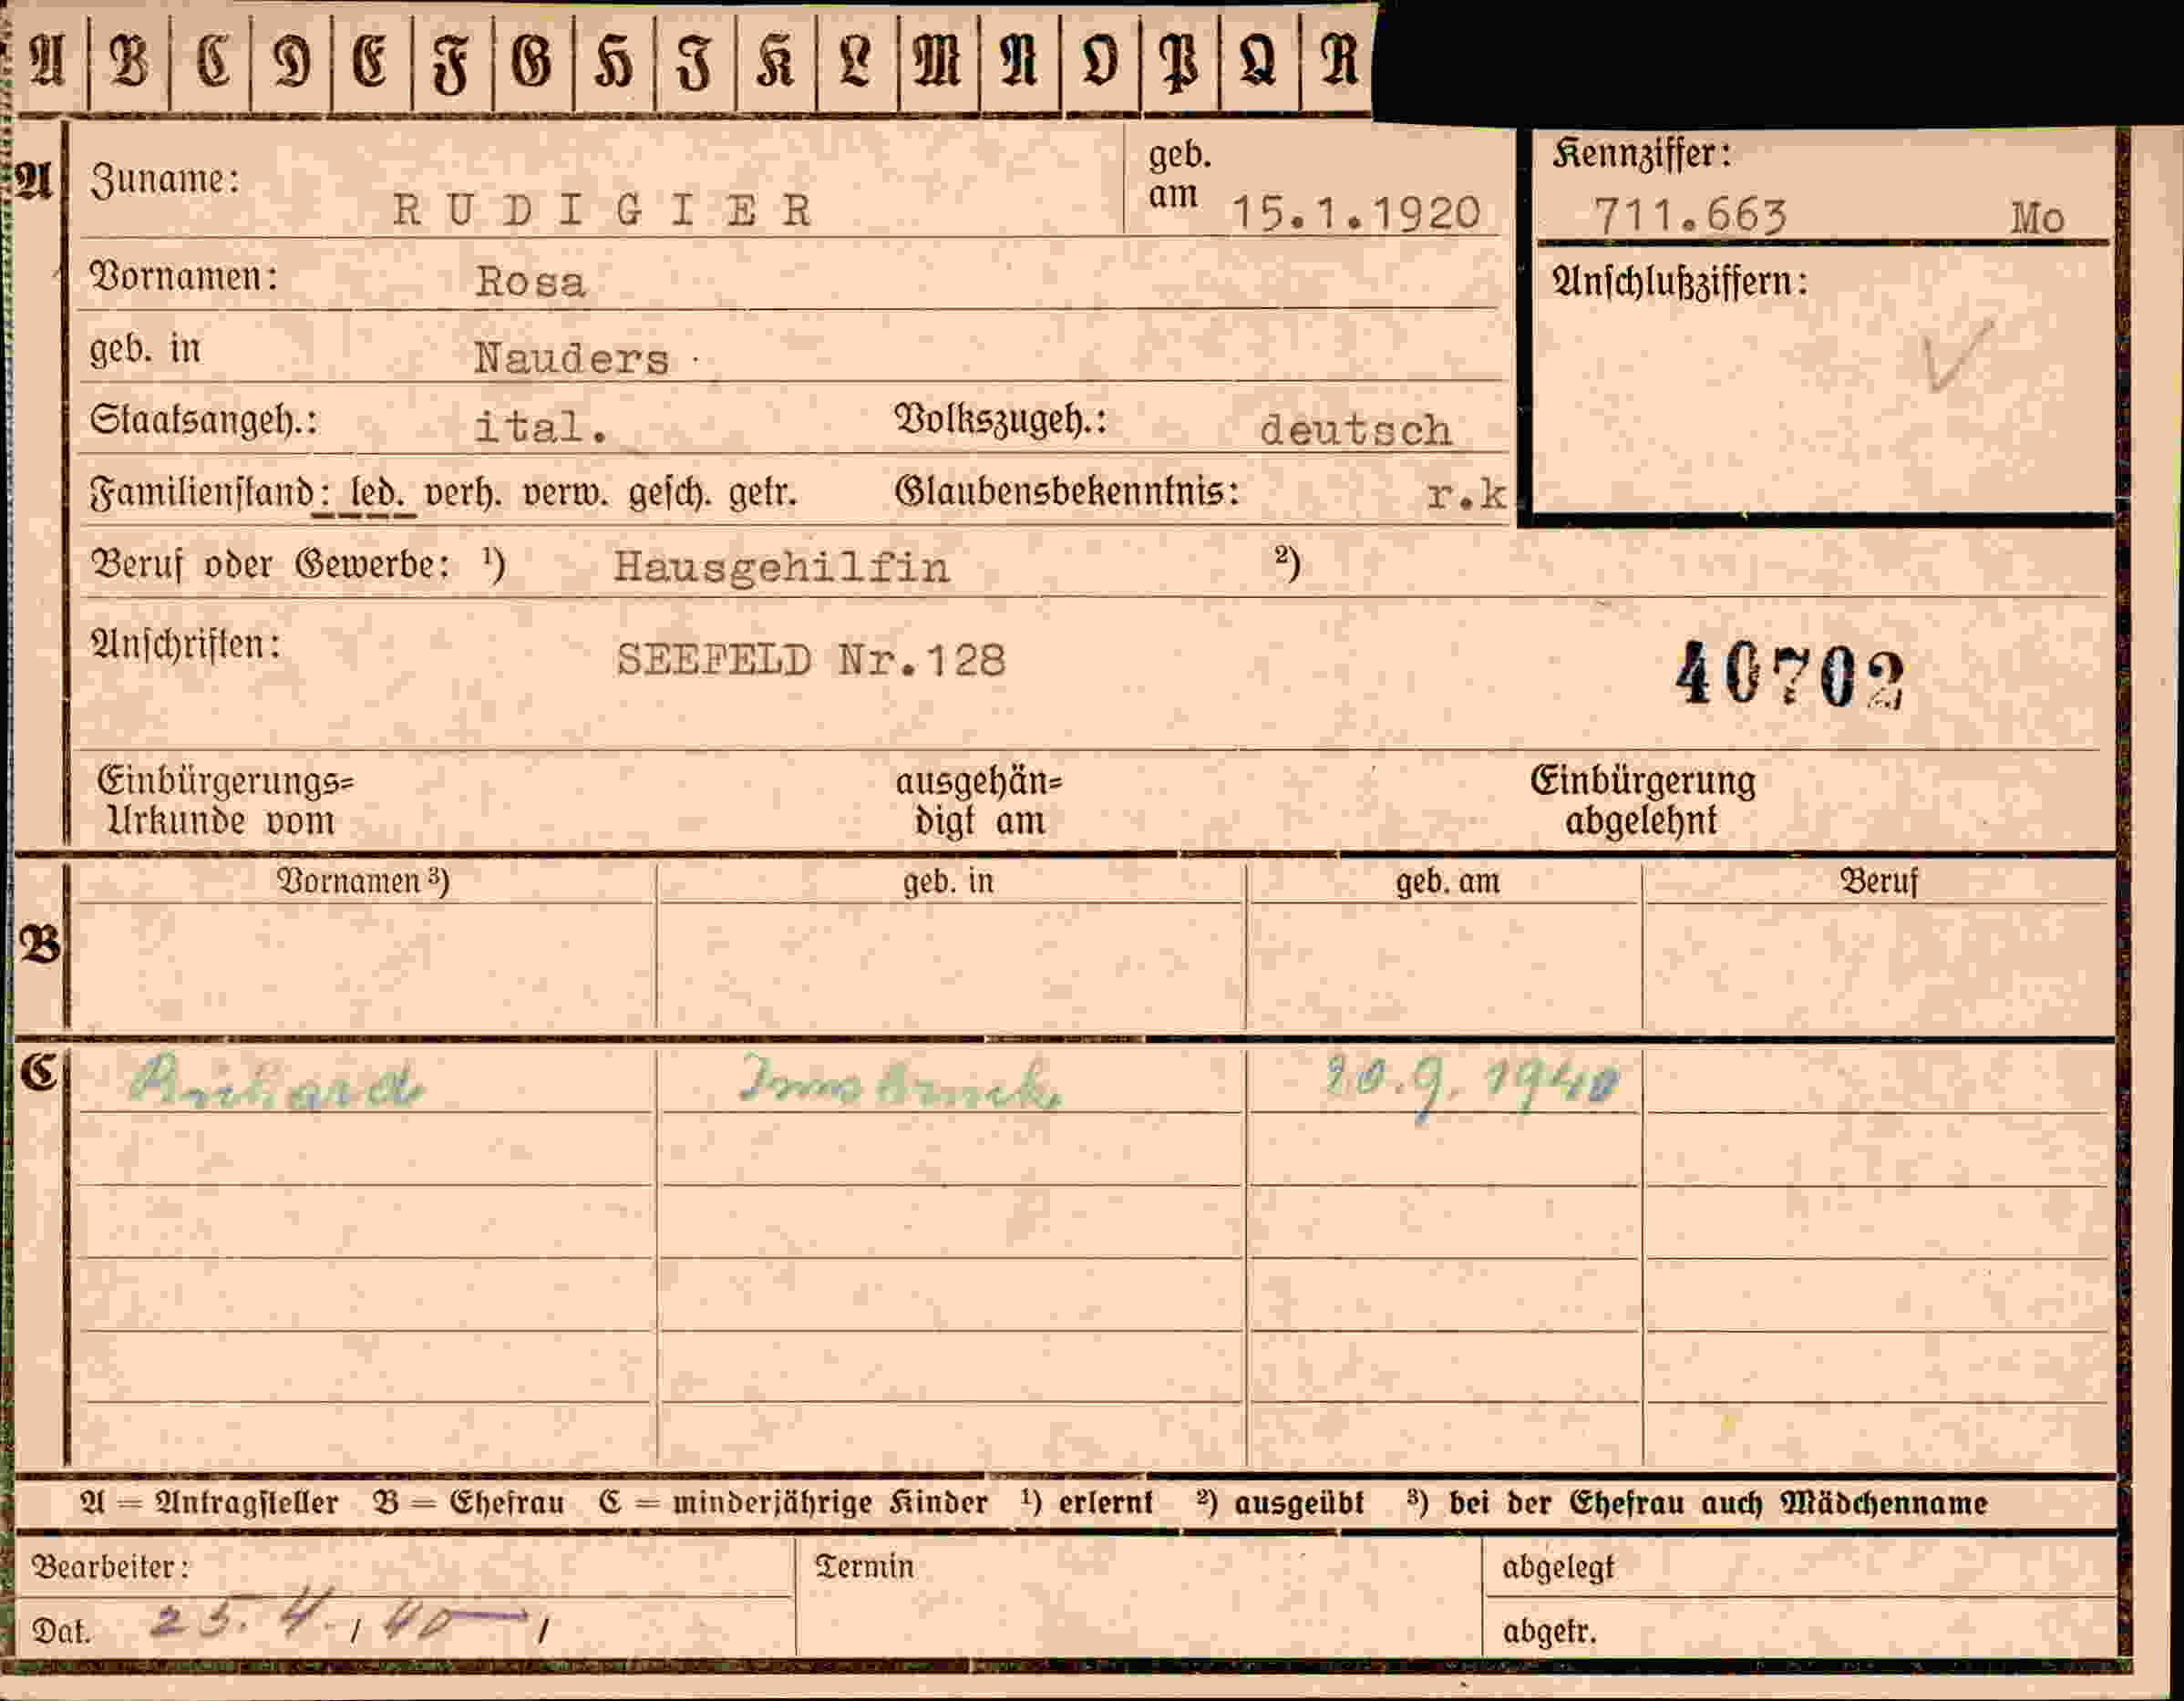 A B C D E F G H I K L M N O P Q R
A Zuname: RUDIGIER geb. am 15.1.1920 Kennziffer: 711.663 Mo
Vornamen: Rosa Anschlußziffern:
geb. in Nauders
Staatsangeh.: ital. Volkszugeh.: deutsch
Familienstand: led. verh. verw. gesch. getr. Glaubensbekenntnis: r.k
Beruf oder Gewerbe: ¹) Hausgehilfin ²)
Anschriften: SEEFELD Nr.128 40702
Einbürgerungs= ausgehän= Einbürgerung
Urkunde vom digt am abgelehnt
Vornamen ³) geb. in geb. am Beruf
B
C Richard Innsbruck 20.9.1940
A = Antragsteller B = Ehefrau C = minderjährige Kinder ¹) erlernt ²) ausgeübt ³) bei der Ehefrau auch Mädchenname
Bearbeiter: Termin abgelegt
Dat. 25.4./40 / abgetr.